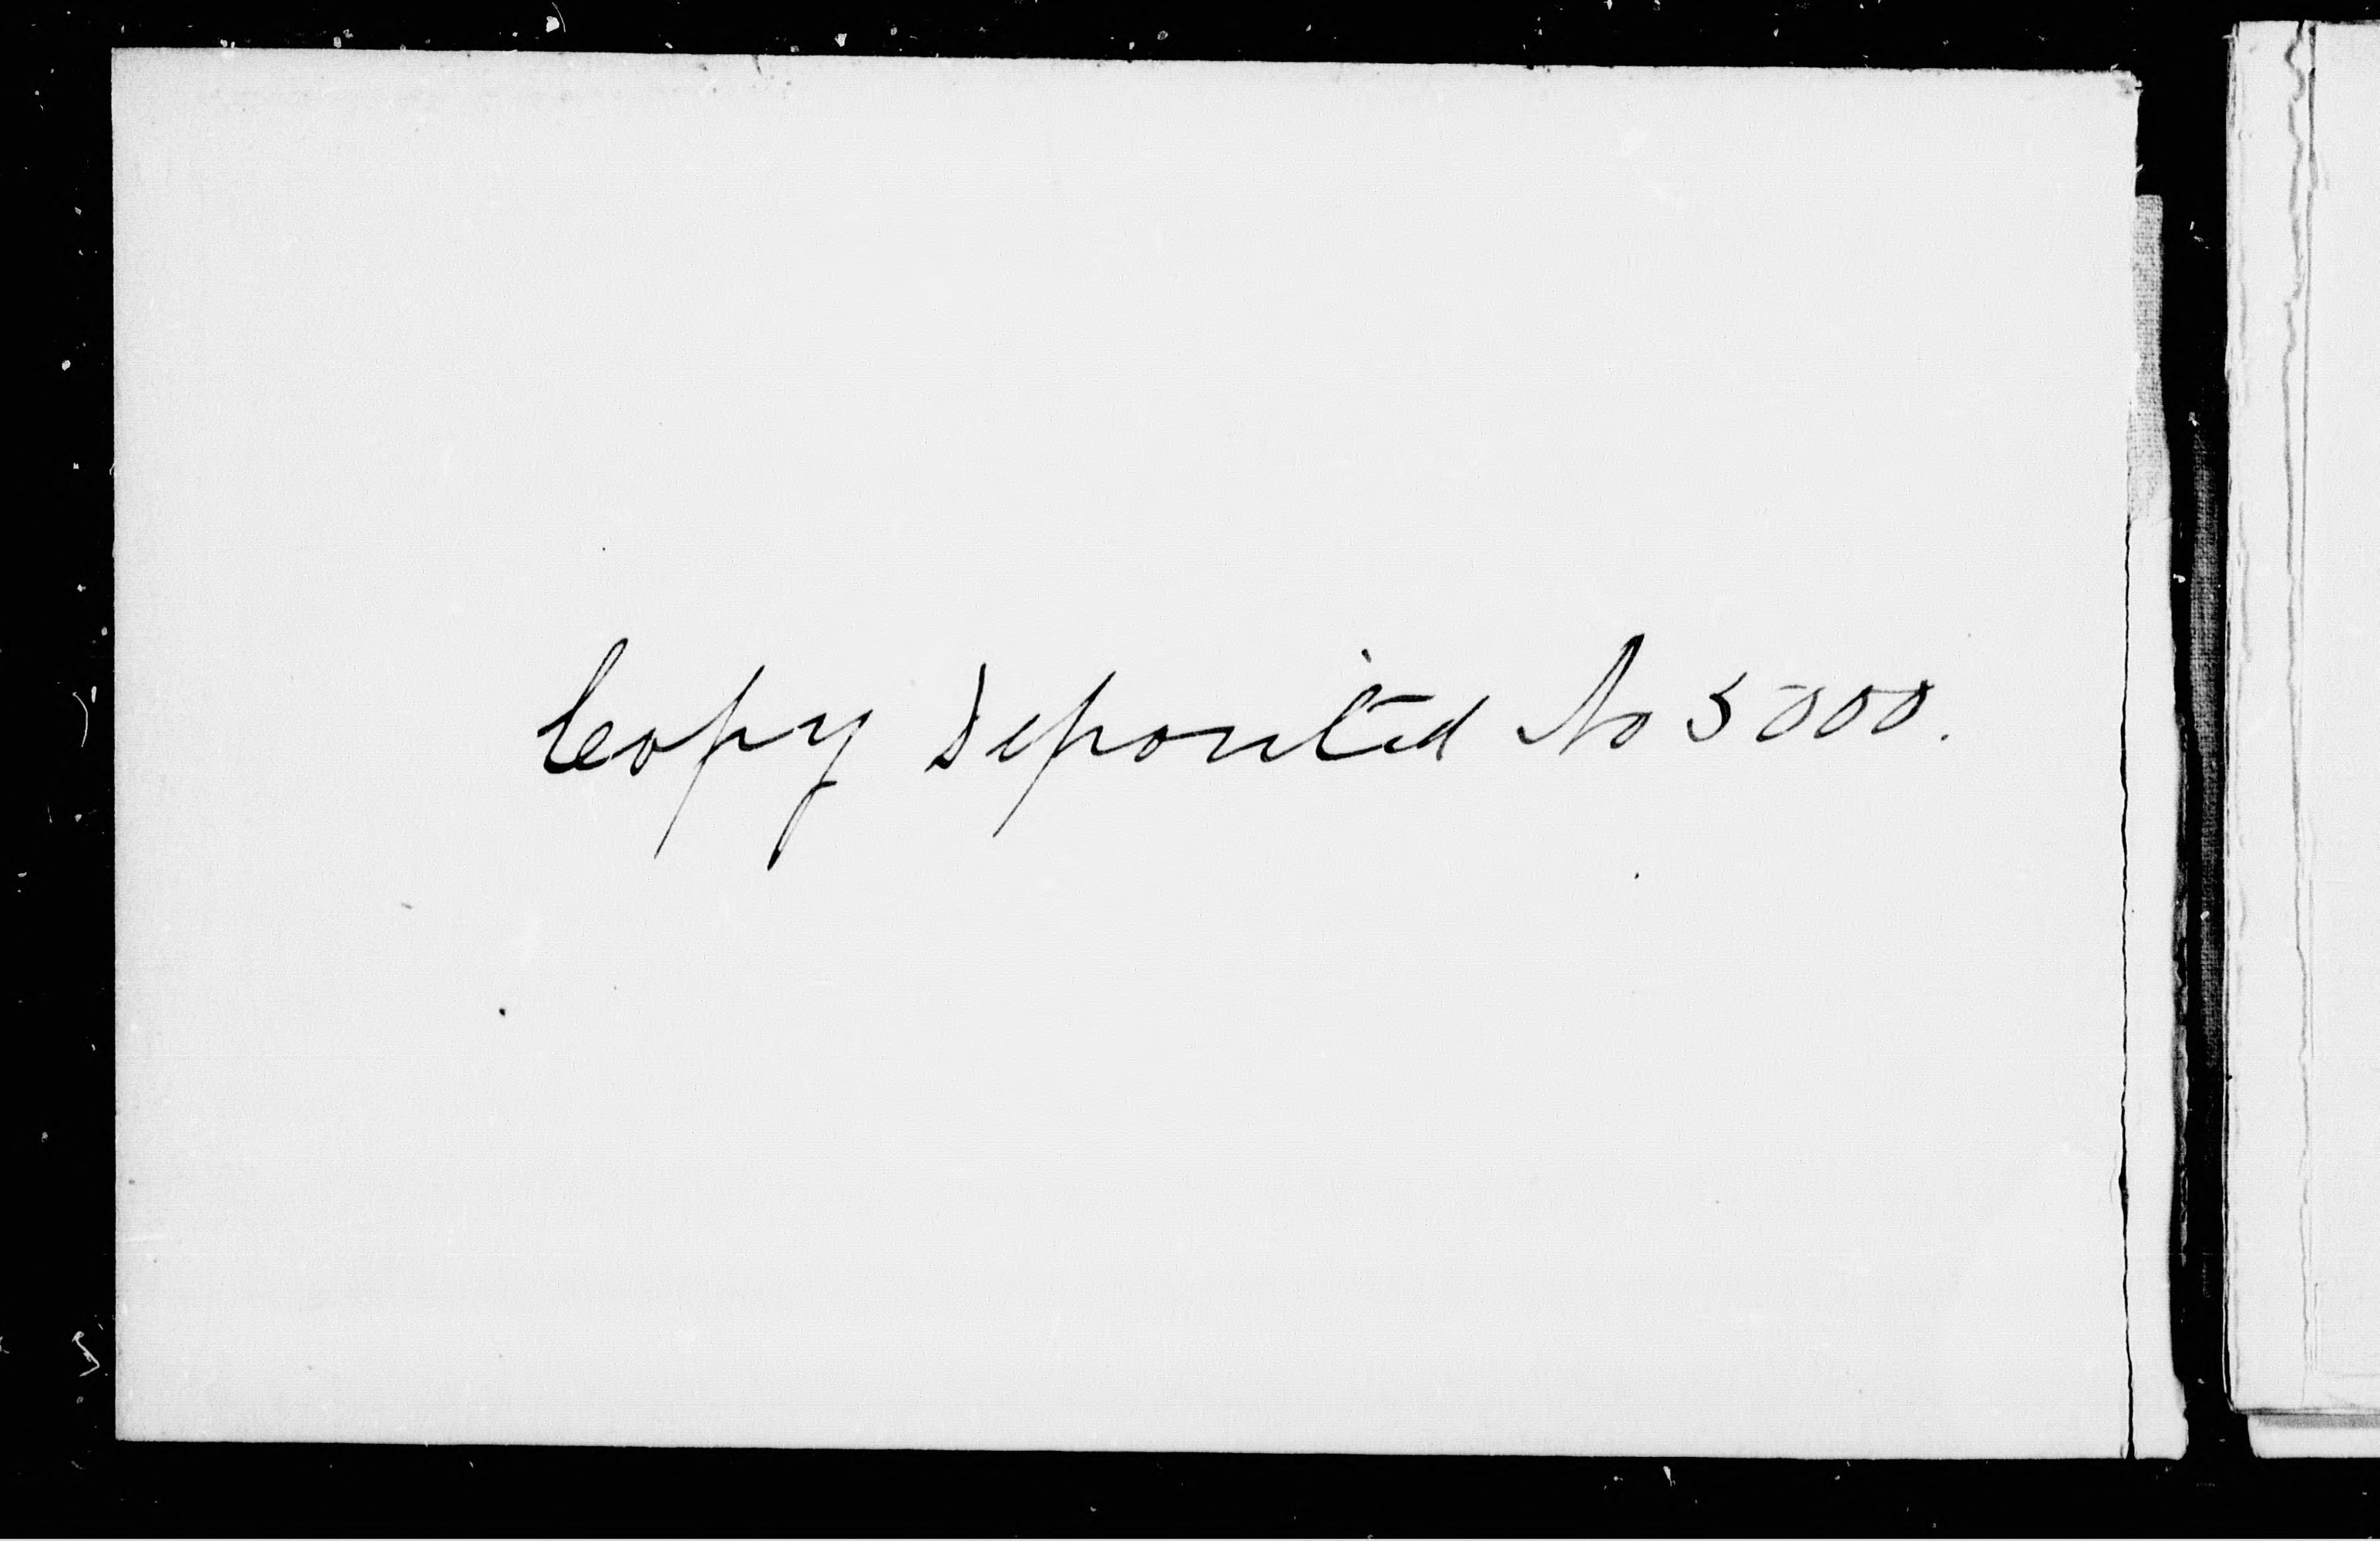 Copy Deposited No 5000.